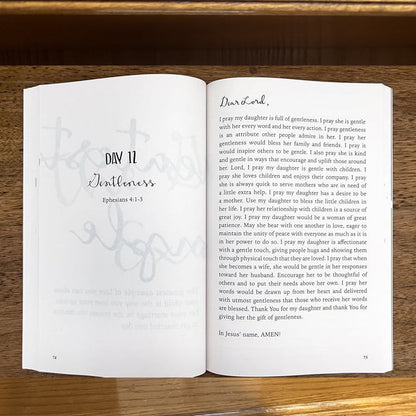 DAY 12
Gentleness
Ephesians 4:1-3
74
Dear Lord,
I pray my daughter is full of gentleness. I pray she is gentle
with her every word and her every action. I pray gentleness
is an attribute other people admire in her. I pray her
gentleness would bless her family and friends. I pray it
would inspire others to be gentle. I also pray she is kind
and gentle in ways that encourage and uplift those around
her. Lord, I pray my daughter is gentle with children. I
pray she loves children and enjoys their company. I pray
she is always quick to serve mothers who are in need of
a little extra help. I pray my daughter has a desire to be
a mother. Use my daughter to bless the little children in
her life. I pray her relationship with children is a source of
great joy. I pray my daughter would be a woman of great
patience. May she bear with one another in love, eager to
maintain the unity of peace with everyone as much as it is
in her power to do so. I pray my daughter is affectionate
with a gentle touch, giving people hugs and showing them
through physical touch that they are loved. I pray that when
she becomes a wife, she would be gentle in her responses
toward her husband. Encourage her to be thoughtful of
others and to put their needs above her own. I pray her
words would be drawn up from her heart and delivered
with utmost gentleness that those who receive her words
are blessed. Thank You for my daughter and thank You for
giving her the gift of gentleness.
In Jesus' name, AMEN!
75